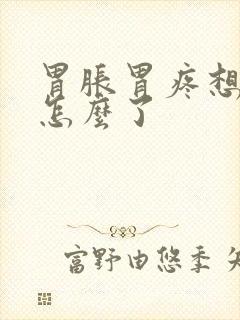 胃脹胃疼想
怎麼了
富野由悠季 矢